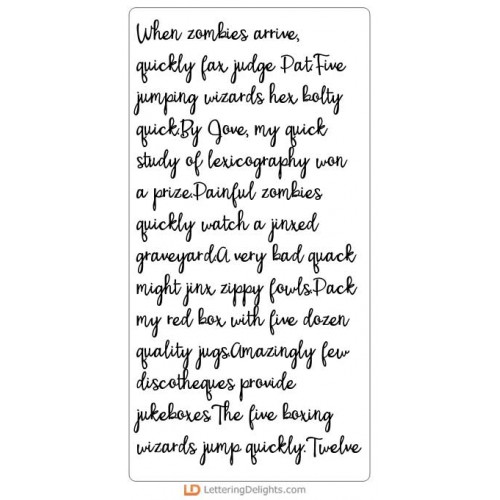 When zombies arrive,
quickly fax judge Pat.Five
jumping wizards hex bolty
quick.By Jove, my quick
study of lexicography won
a prize.Painful zombies
quickly watch a jinxed
graveyard.A very bad quack
might jinx zippy fowls.Pack
my red box with five dozen
quality jugs.Amazingly few
discotheques provide
jukeboxes.The five boxing
wizards jump quickly. Twelve
LD LetteringDelights.com